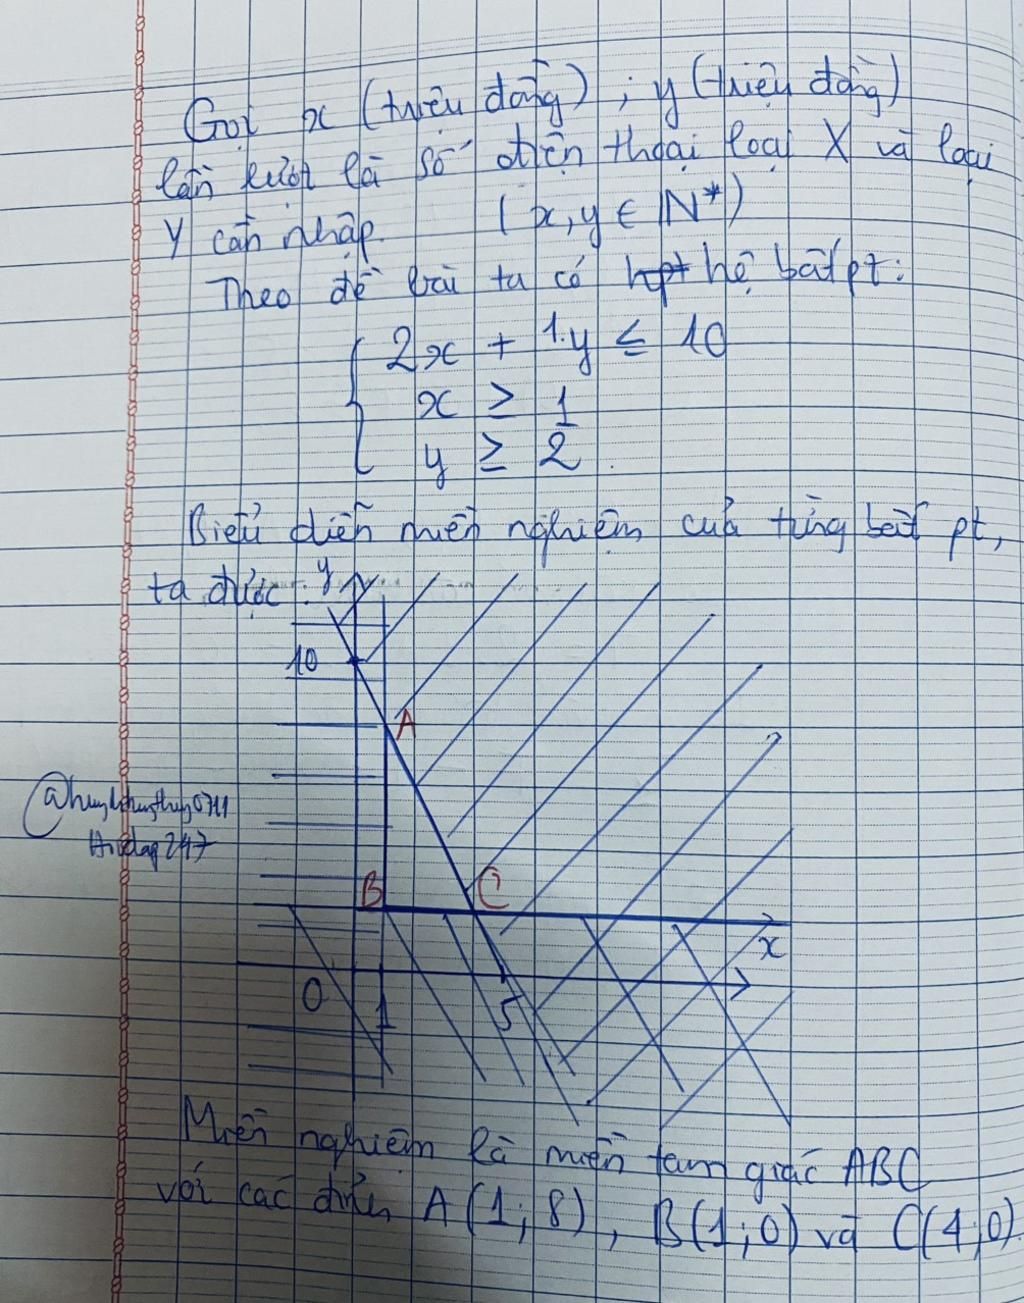 Gọi x (triệu đồng) ; y (triệu đồng)
lần lượt là số điện thoại loại X và loại
Y cần nhập. (x, y ∈ N*)
Theo đề bài ta có hpt hệ bất pt:
2x + 1.y ≤ 10
x ≥ 1
y ≥ 2
Biểu diễn miền nghiệm của từng bất pt,
ta được:
y
10
A
B
C
x
0
1
5
Miền nghiệm là miền tam giác ABC
với các đỉnh A(1;8), B(1;0) và C(4;0).